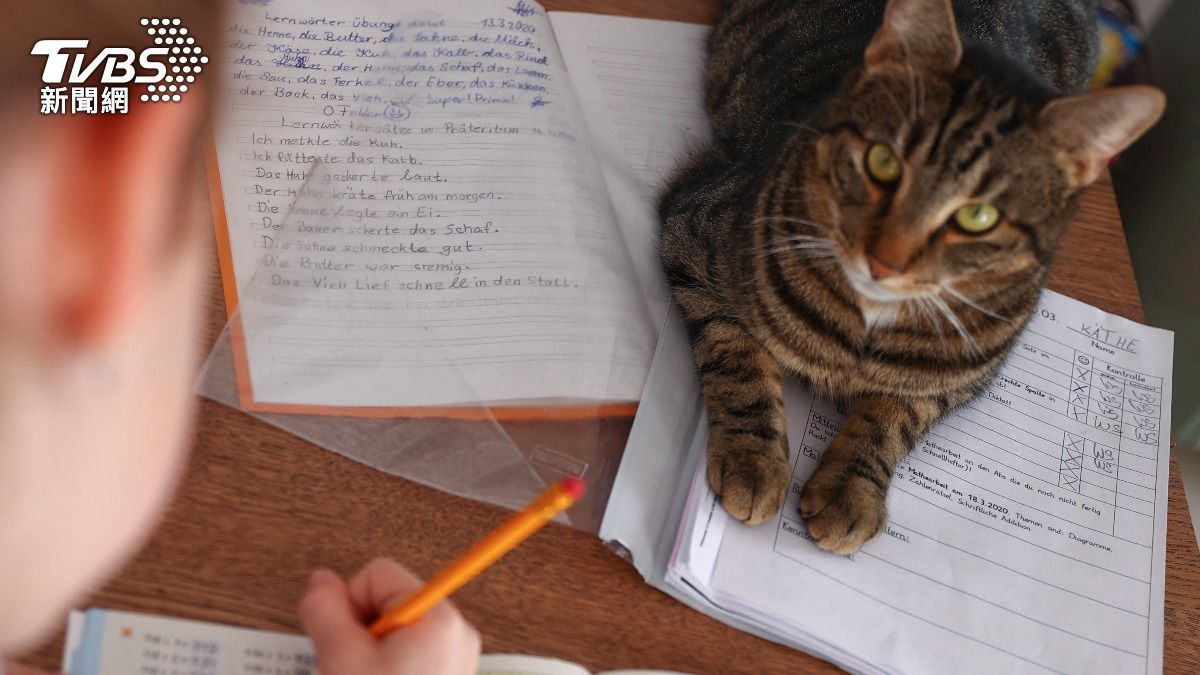 TVBS
新聞網
Lernwörter übung 13.3.2020
die Henne, die Butter, die Sahne, die Milch,
der Käse, die Kuh, das Kalb, das Rind
das Huhn, der Hahn, das Schaf, das Lamm,
die Sau, das Ferkel, der Eber, das Kücken,
der Bock, das Vieh, Super! Prima!
0 Fehler
Lernwörtersätze im Präteritum
Ich melkte die Kuh.
Ich fütterte das Kalb.
Das Huhn gackerte laut.
Der Hahn kräte früh am morgen.
Die Henne legte ein Ei.
Der Bauer scherte das Schaf.
Die Sahne schmeckte gut.
Die Butter war cremig.
Das Vieh Lief schnell in den Stall.
03. KÄTHE
Name
Kontrolle
Satz im
rechte Spalte in
ab!
Diktat!
Mitteil
Du sch
Punkt
an den Abs die du noch nicht fertig
Schnellhefter))
Mathearbeit am 18.3.2020, Themen sind: Diagramme,
ng, Zahlenrätsel, Schriftliche Addition
Kennt
ltern: